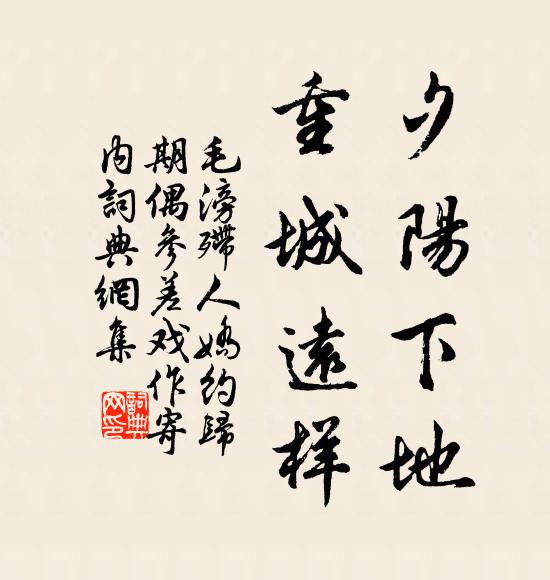 夕陽下地
重城遠样
毛滂殢人嬌約歸
期偶參差戏作寄
内詞典網集
詞典
网印